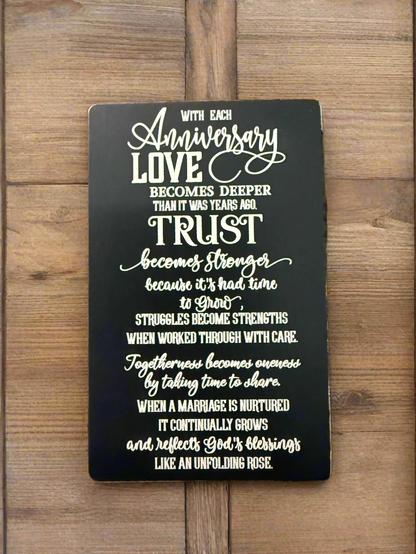 WITH EACH
Anniversary
LOVE
BECOMES DEEPER
THAN IT WAS YEARS AGO.
TRUST
becomes stronger
because it's had time
to Grow,
STRUGGLES BECOME STRENGTHS
WHEN WORKED THROUGH WITH CARE.
Togetherness becomes oneness
by taking time to share.
WHEN A MARRIAGE IS NURTURED
IT CONTINUALLY GROWS
and reflects God's blessings
LIKE AN UNFOLDING ROSE.